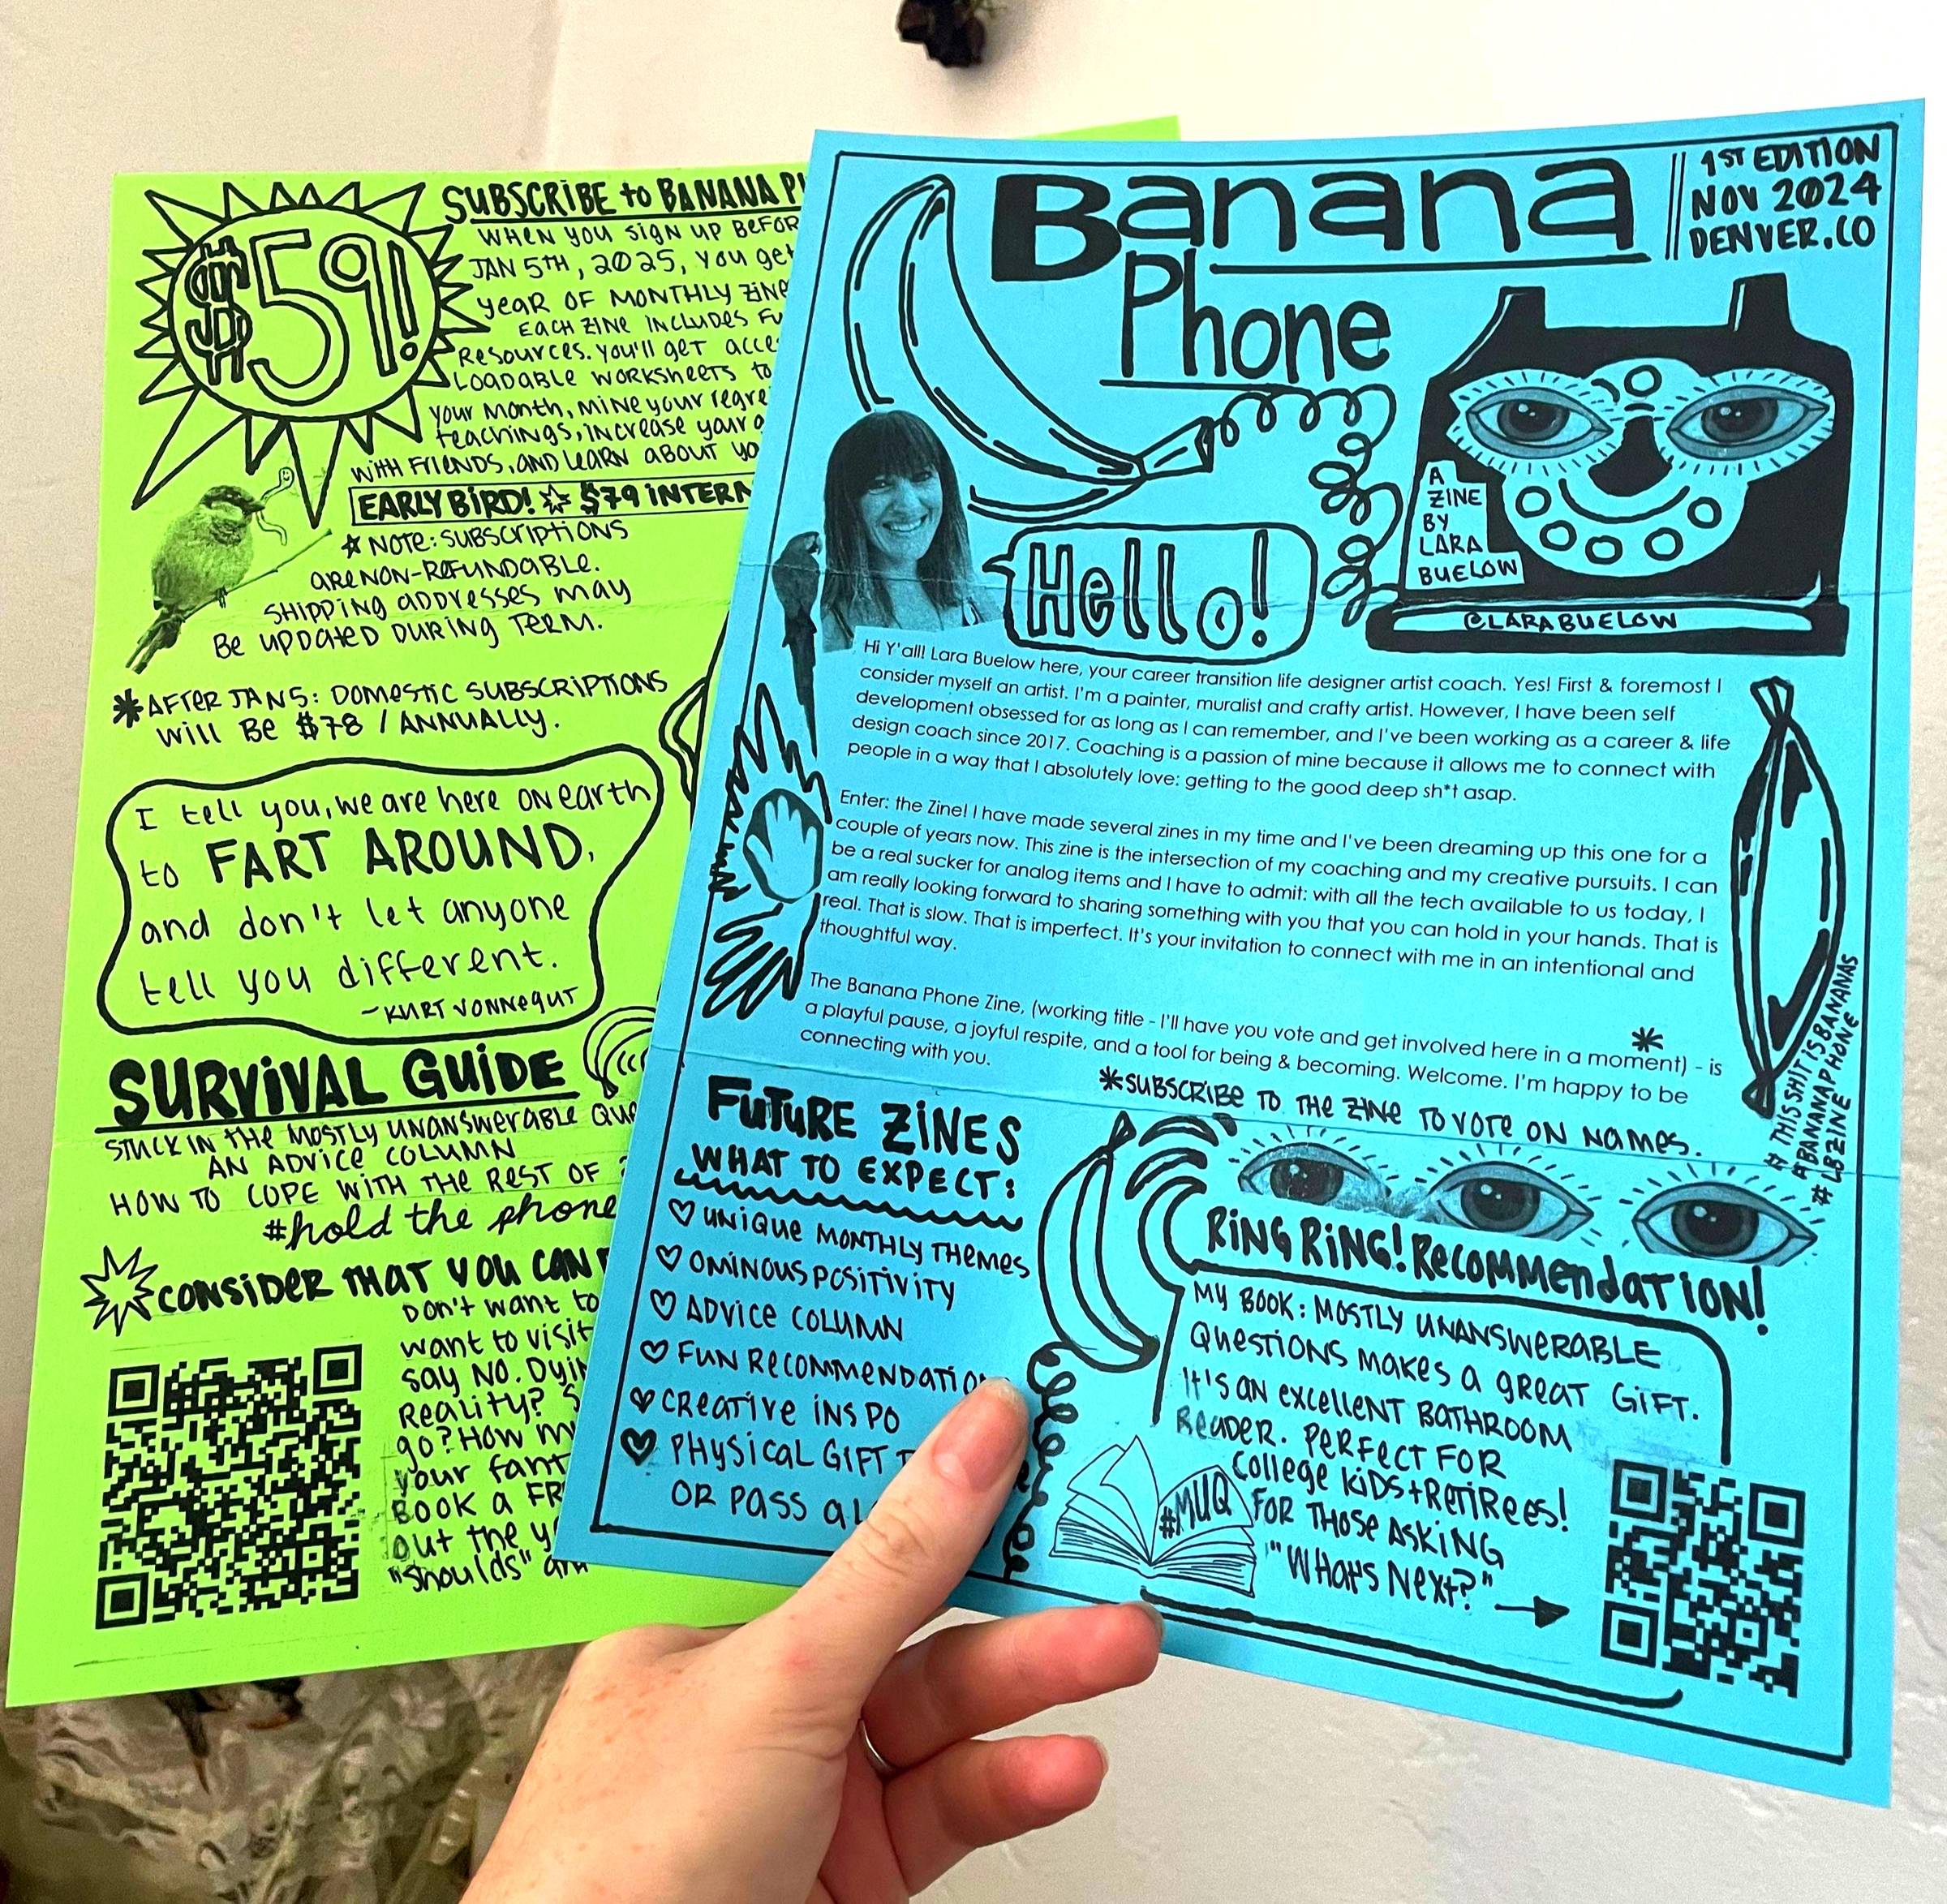 $59!
SUBSCRIBE to BANANA
WHEN YOU SIGN UP BEFOR
JAN 5TH, 2025, YOU get
YEAR OF MONTHLY ZINE
EACH ZINE INCLUDES FU
RESOURCES. YOU'LL GET ACCE
LOADABLE WORKSHEETS TO
YOUR MONTH, MINE YOUR REGRE
TEACHINGS, INCREASE YOUR
WITH FRIENDS, AND LEARN ABOUT YO
EARLY BIRD! ☆ $79 INTERN
☆ NOTE: SUBSCRIPTIONS
ARE NON-REFUNDABLE.
SHIPPING ADDRESSES MAY
BE UPDATED DURING TERM.
*AFTER JAN 5: DOMESTIC SUBSCRIPTIONS
WILL BE $78 / ANNUALLY.
I tell you, we are here on earth
to FART AROUND,
and don't let anyone
tell you different.
~KURT VONNEGUT
SURVIVAL GUIDE
STUCK IN THE MOSTLY UNANSWERABLE QUE
AN ADVICE COLUMN
HOW TO COPE WITH THE REST OF
#hold the phone
CONSIDER THAT YOU CAN
DON'T WANT TO
WANT TO VISIT
SAY NO. DYIN
REALITY? S
GO? HOW M
YOUR FANT
BOOK A FR
OUT THE Y
"SHOULDS" AN
Banana
Phone
1ST EDITION
NOV 2024
DENVER, CO
A
ZINE
BY
LARA
BUELOW
@LARABUELOW
Hello!
Hi Y'all! Lara Buelow here, your career transition life designer artist coach. Yes! First & foremost I
consider myself an artist. I'm a painter, muralist and crafty artist. However, I have been self
development obsessed for as long as I can remember, and I've been working as a career & life
design coach since 2017. Coaching is a passion of mine because it allows me to connect with
people in a way that I absolutely love: getting to the good deep sh*t asap.
Enter: the Zine! I have made several zines in my time and I've been dreaming up this one for a
couple of years now. This zine is the intersection of my coaching and my creative pursuits. I can
be a real sucker for analog items and I have to admit: with all the tech available to us today, I
am really looking forward to sharing something with you that you can hold in your hands. That is
real. That is slow. That is imperfect. It's your invitation to connect with me in an intentional and
thoughtful way.
The Banana Phone Zine, (working title - I'll have you vote and get involved here in a moment) - is
a playful pause, a joyful respite, and a tool for being & becoming. Welcome. I'm happy to be
connecting with you.
*
*SUBSCRIBE TO THE ZINE TO VOTE ON NAMES.
# THIS SHIT IS BANANAS
#BANANAPHONE
# LBZINE
FUTURE ZINES
WHAT TO EXPECT:
♡ UNIQUE MONTHLY THEMES
♡ OMINOUS POSITIVITY
♡ ADVICE COLUMN
♡ FUN RECOMMENDATION
♡ CREATIVE INSPO
♡ PHYSICAL GIFT T
OR PASS AL
RING RING! RECOMMENDATION!
MY BOOK: MOSTLY UNANSWERABLE
QUESTIONS MAKES A GREAT GIFT.
IT'S AN EXCELLENT BATHROOM
READER. PERFECT FOR
COLLEGE KIDS + RETIREES!
FOR THOSE ASKING
"WHAT'S NEXT?"
#MUQ